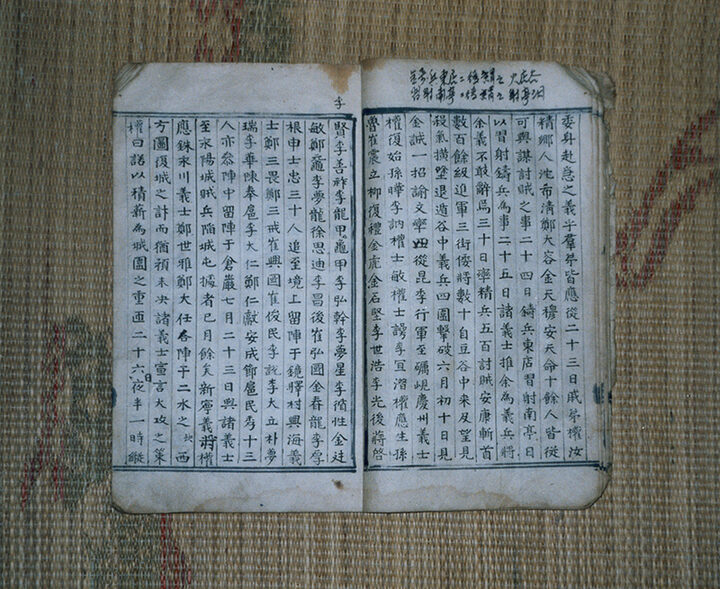 委身赴急之義乎羣弟皆應從二十三日戚弟權汝
精鄉人沈希清鄭大容金天穆安天命十餘人皆從
可與謀討賊之事二十四日鑄兵東店習射南亭日
以習射鑄兵為事二十五日諸義士推余為義兵將
余義不敢辭焉三十日率精兵五百討賊安康斬首
數百餘級進軍三街倭將數十自豆谷中來及望見
殺氣擴墜退遁谷中義兵四圍擊破六月初十日見
金誠一招諭文率四從昆季行軍至礪峴慶州義士
權復始孫曄李訥權士敏權士諤李宜溜權應生孫
魯崔震立柳復禮金虎金石堅李世浩李光後蔣啓
李
賢李善祚李龍甲李弘幹李夢星李循性金廷
敏鄭鼇李夢龍徐思迪李昌後崔弘國金春龍李厚
根申士忠三十人追至境上留陣于鏡驛村興海義
士鄭三畏鄭三戒崔興國崔俊民李說李大立朴夢
瑞李華陳奉扈李大仁鄭仁獻安成節扈民秀十三
人亦忝陣中留陣于倉巖七月二十三日與諸義士
至永陽城賊兵陷城屯據者已月餘矣新寧義將權
應銖永川義士鄭世雅鄭大任各陣于二水之北西
方圖復城之計而猶預未決諸義士宣言火攻之策
權曰諾以積薪為城圍之重匝二十六日夜半一時縱